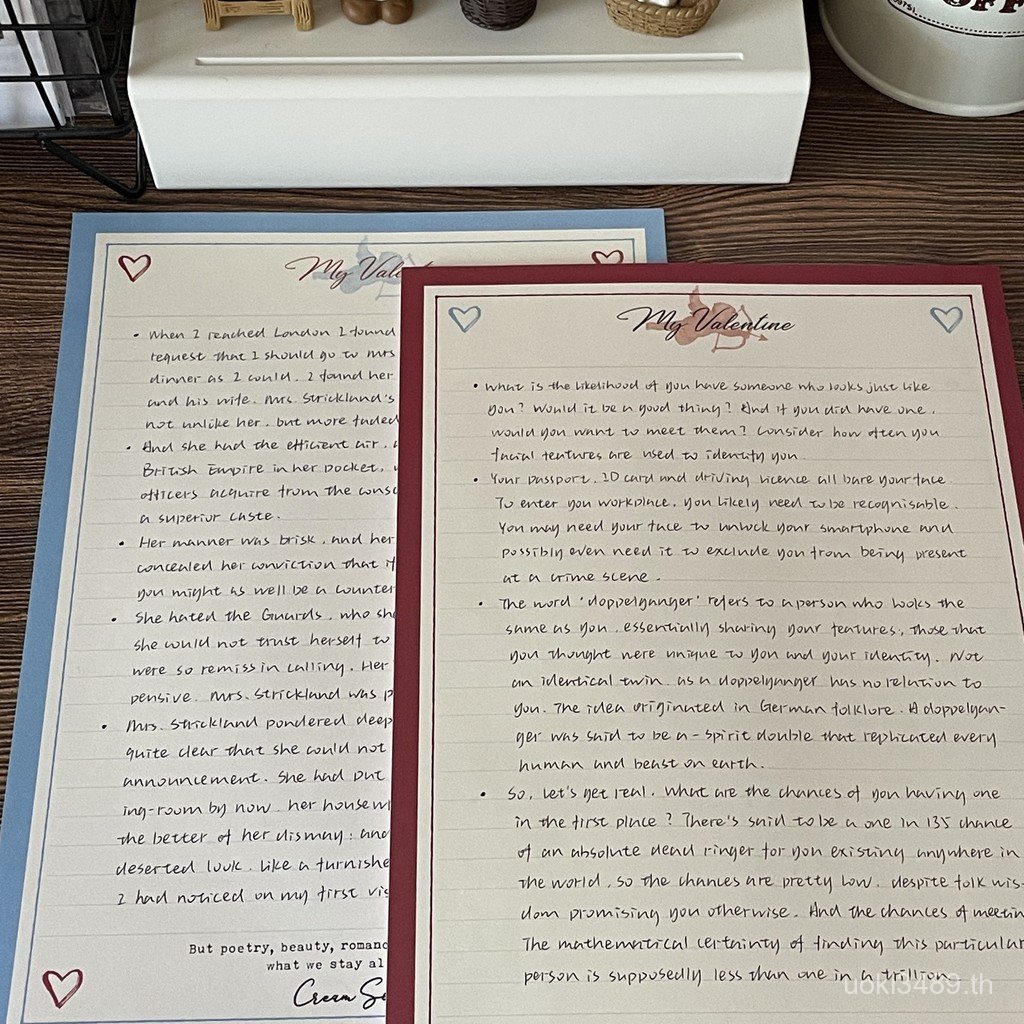 OFF
My Vale
• When I reached London I found
request that I should go to Mrs
dinner as I could. I found her
and his wife. Mrs. Strickland's
not unlike her, but more faded
• And she had the efficient air,
British Empire in her pocket,
officers acquire from the consc
a superior caste.
• Her manner was brisk, and her
concealed her conviction that if
you might as well be a counter
• She hated the Guards, who she
she would not trust herself to
were so remiss in calling. Her
pensive. Mrs. Strickland was p
• Mrs. Strickland pondered deep
quite clear that she could not
announcement. She had put
ing-room by now. her housewi
the better of her dismay; and
deserted look, like a furnishe
I had noticed on my first vis
But poetry, beauty, romanc
what we stay al
Cream
My Valentine
• What is the likelihood of you have someone who looks just like
you? Would it be a good thing? And if you did have one,
would you want to meet them? Consider how often you
facial features are used to identify you.
• Your passport, ID card and driving licence all bare your face.
To enter you workplace, you likely need to be recognisable.
You may need your face to unlock your smartphone and
possibly even need it to exclude you from being present
at a crime scene.
• The word 'doppelganger' refers to a person who looks the
same as you, essentially sharing your features; Those that
you thought were unique to you and your identity. Not
an identical twin, as a doppelganger has no relation to
you. The idea originated in German folklore. A doppelgan-
ger was said to be a - spirit double that replicated every
human and beast on earth.
• So, let's get real. What are the chances of you having one
in the first place? There's said to be a one in 135 chance
of an absolute dead ringer for you existing anywhere in
the world, so the chances are pretty low, despite folk wis-
dom promising you otherwise. And the chances of meetin
The mathematical certainty of finding this particular
person is supposedly less than one in a trillion.
uoki3489.th